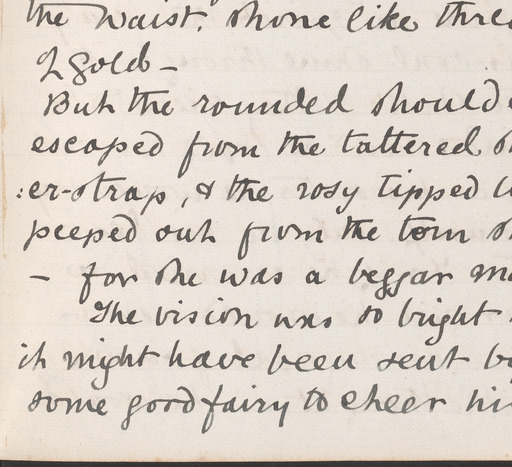 the waist, shone like thre
of gold -
But the rounded should
escaped from the tattered s
:er-strap, & the rosy tipped
peeped out from the torn s
- for she was a beggar m
The vision was so bright
it might have been sent b
some good fairy to cheer hi